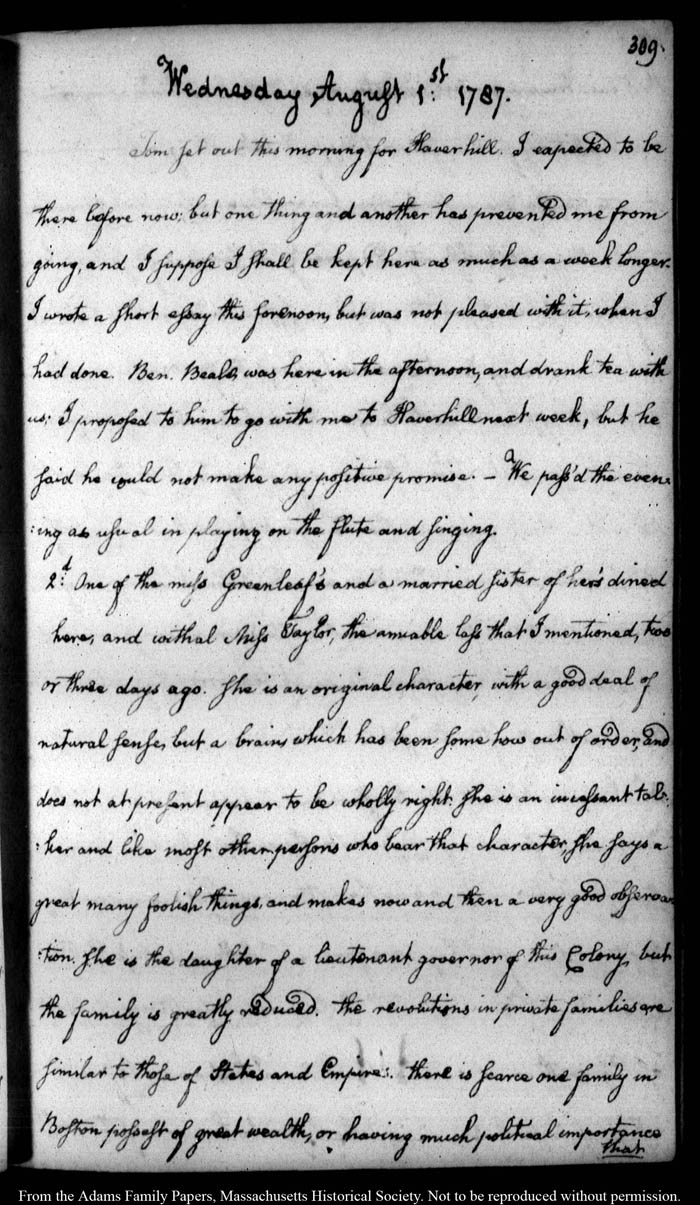 309.
Wednesday, August 1:st 1787.
Tom set out this morning for Haverhill. I expected to be
there before now; but one thing and another has prevented me from
going, and I suppose I shall be kept here as much as a week longer.
I wrote a short essay this forenoon, but was not pleased with it, when I
had done. Ben. Beale, was here in the afternoon, and drank tea with
us; I proposed to him to go with me to Haverhill next week, but he
said he would not make any positive promise. — We pass'd the even:
:ing as usual in playing on the flute and singing.
2:d One of the miss Greenleaf's and a married sister of her's dined
here, and withal Miss Taylor, the amiable lass that I mentioned, two
or three days ago. She is an original character, with a good deal of
natural sense, but a brain, which has been some how out of order, and
does not at present appear to be wholly right. She is an incessant tal:
:ker and like most other persons who bear that character, she says a
great many foolish things, and makes now and then a very good observa:
:tion. She is the daughter of a lieutenant governor of this Colony, but
the family is greatly reduced. The revolutions in private families are
similar to those of States and Empires. there is scarce one family in
Boston possest of great wealth, or having much political importance
that
From the Adams Family Papers, Massachusetts Historical Society. Not to be reproduced without permission.